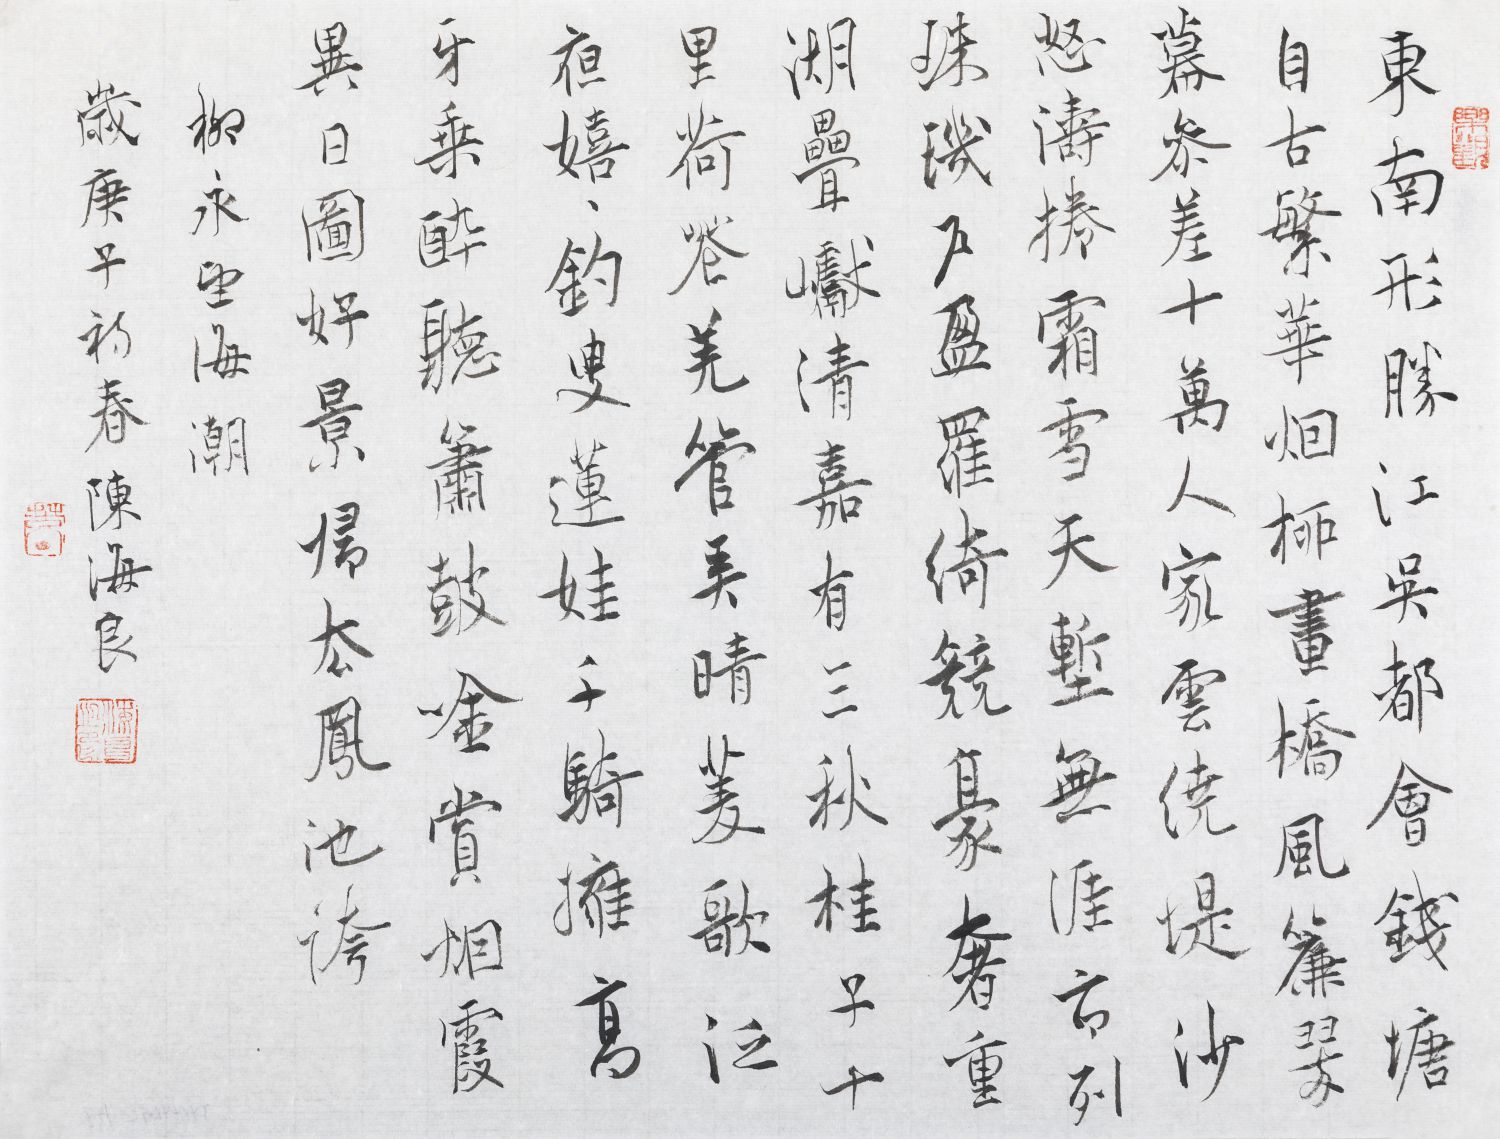 東南形勝江吳都會錢塘
自古繁華烟柳畫橋風簾翠
幕參差十萬人家雲繞堤沙
怒濤捲霜雪天塹無涯市列
珠璣戶盈羅綺競豪奢重
湖疊巘清嘉有三秋桂子十
里荷花羌管弄晴菱歌泛
夜嬉〻釣叟蓮娃千騎擁高
牙乘醉聽簫鼓唫賞烟霞
異日圖好景歸去鳳池誇
柳永望海潮
歲庚子初春陳海良